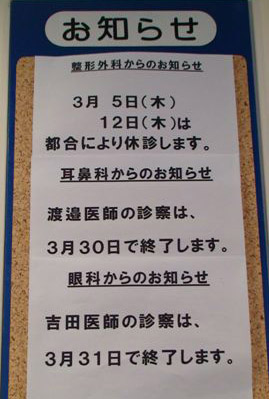 お知らせ
整形外科からのお知らせ
3月 5日(木)
12日(木)は
都合により休診します。
耳鼻科からのお知らせ
渡邉医師の診察は、
3月30日で終了します。
眼科からのお知らせ
吉田医師の診察は、
3月31日で終了します。